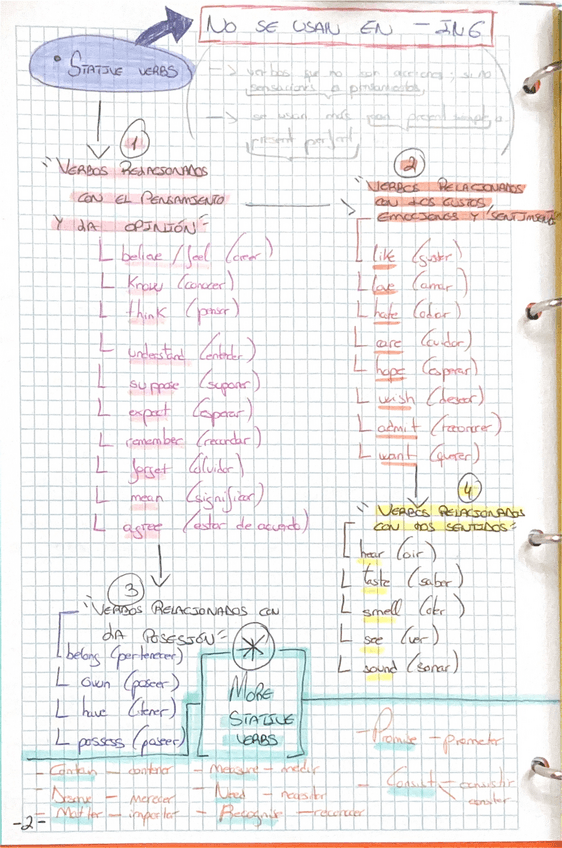 NO SE USAN EN -ING
• STATIVE VERBS
→ verbos que no son acciones; sino
sensaciones o pensamientos,
→ se usan más con present simple o
present perfect,
1
"VERBOS RELACIONADOS
CON EL PENSAMIENTO
Y LA OPINIÓN"
believe / feel (creer)
know (conocer)
think (pensar)
understand (entender)
suppose (suponer)
expect (esperar)
remember (recordar)
forget (olvidar)
mean (significar)
agree (estar de acuerdo)
2
"VERBOS RELACIONADOS
CON LOS GUSTOS,
EMOCIONES Y SENTIMIENTO
like (gustar)
love (amar)
hate (odiar)
care (cuidar)
hope (esperar)
wish (desear)
admit (reconocer)
want (querer)
3
"VERBOS RELACIONADOS CON
LA POSESIÓN"
belong (pertenecer)
own (poseer)
have (tener)
possess (poseer)
4
"VERBOS RELACIONADOS
CON LOS SENTIDOS"
hear (oir)
taste (saber)
smell (oler)
see (ver)
sound (sonar)
*
MORE
STATIVE
VERBS
- Contain - contener
- Deserve - merecer
- Matter - importar
- Measure - medir
- Need - necesitar
- Recognise - reconocer
- Promise - prometer
- Consist - consistir
constar
-2-